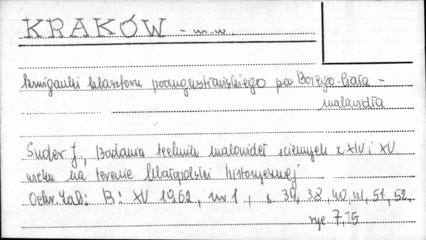 KRAKÓW - m.w.
krużganki klasztoru poaugustiańskiego p.w. Bożego Ciała -
malowidła
Suder J., Badania techniki malowideł ściennych z XIV i XV
wieku na terenie Małopolski historycznej
Ochr. Zab. B: XV 1962, nr 1, s. 39, 38, 40, 41, 51, 52,
ryc. 7, 15